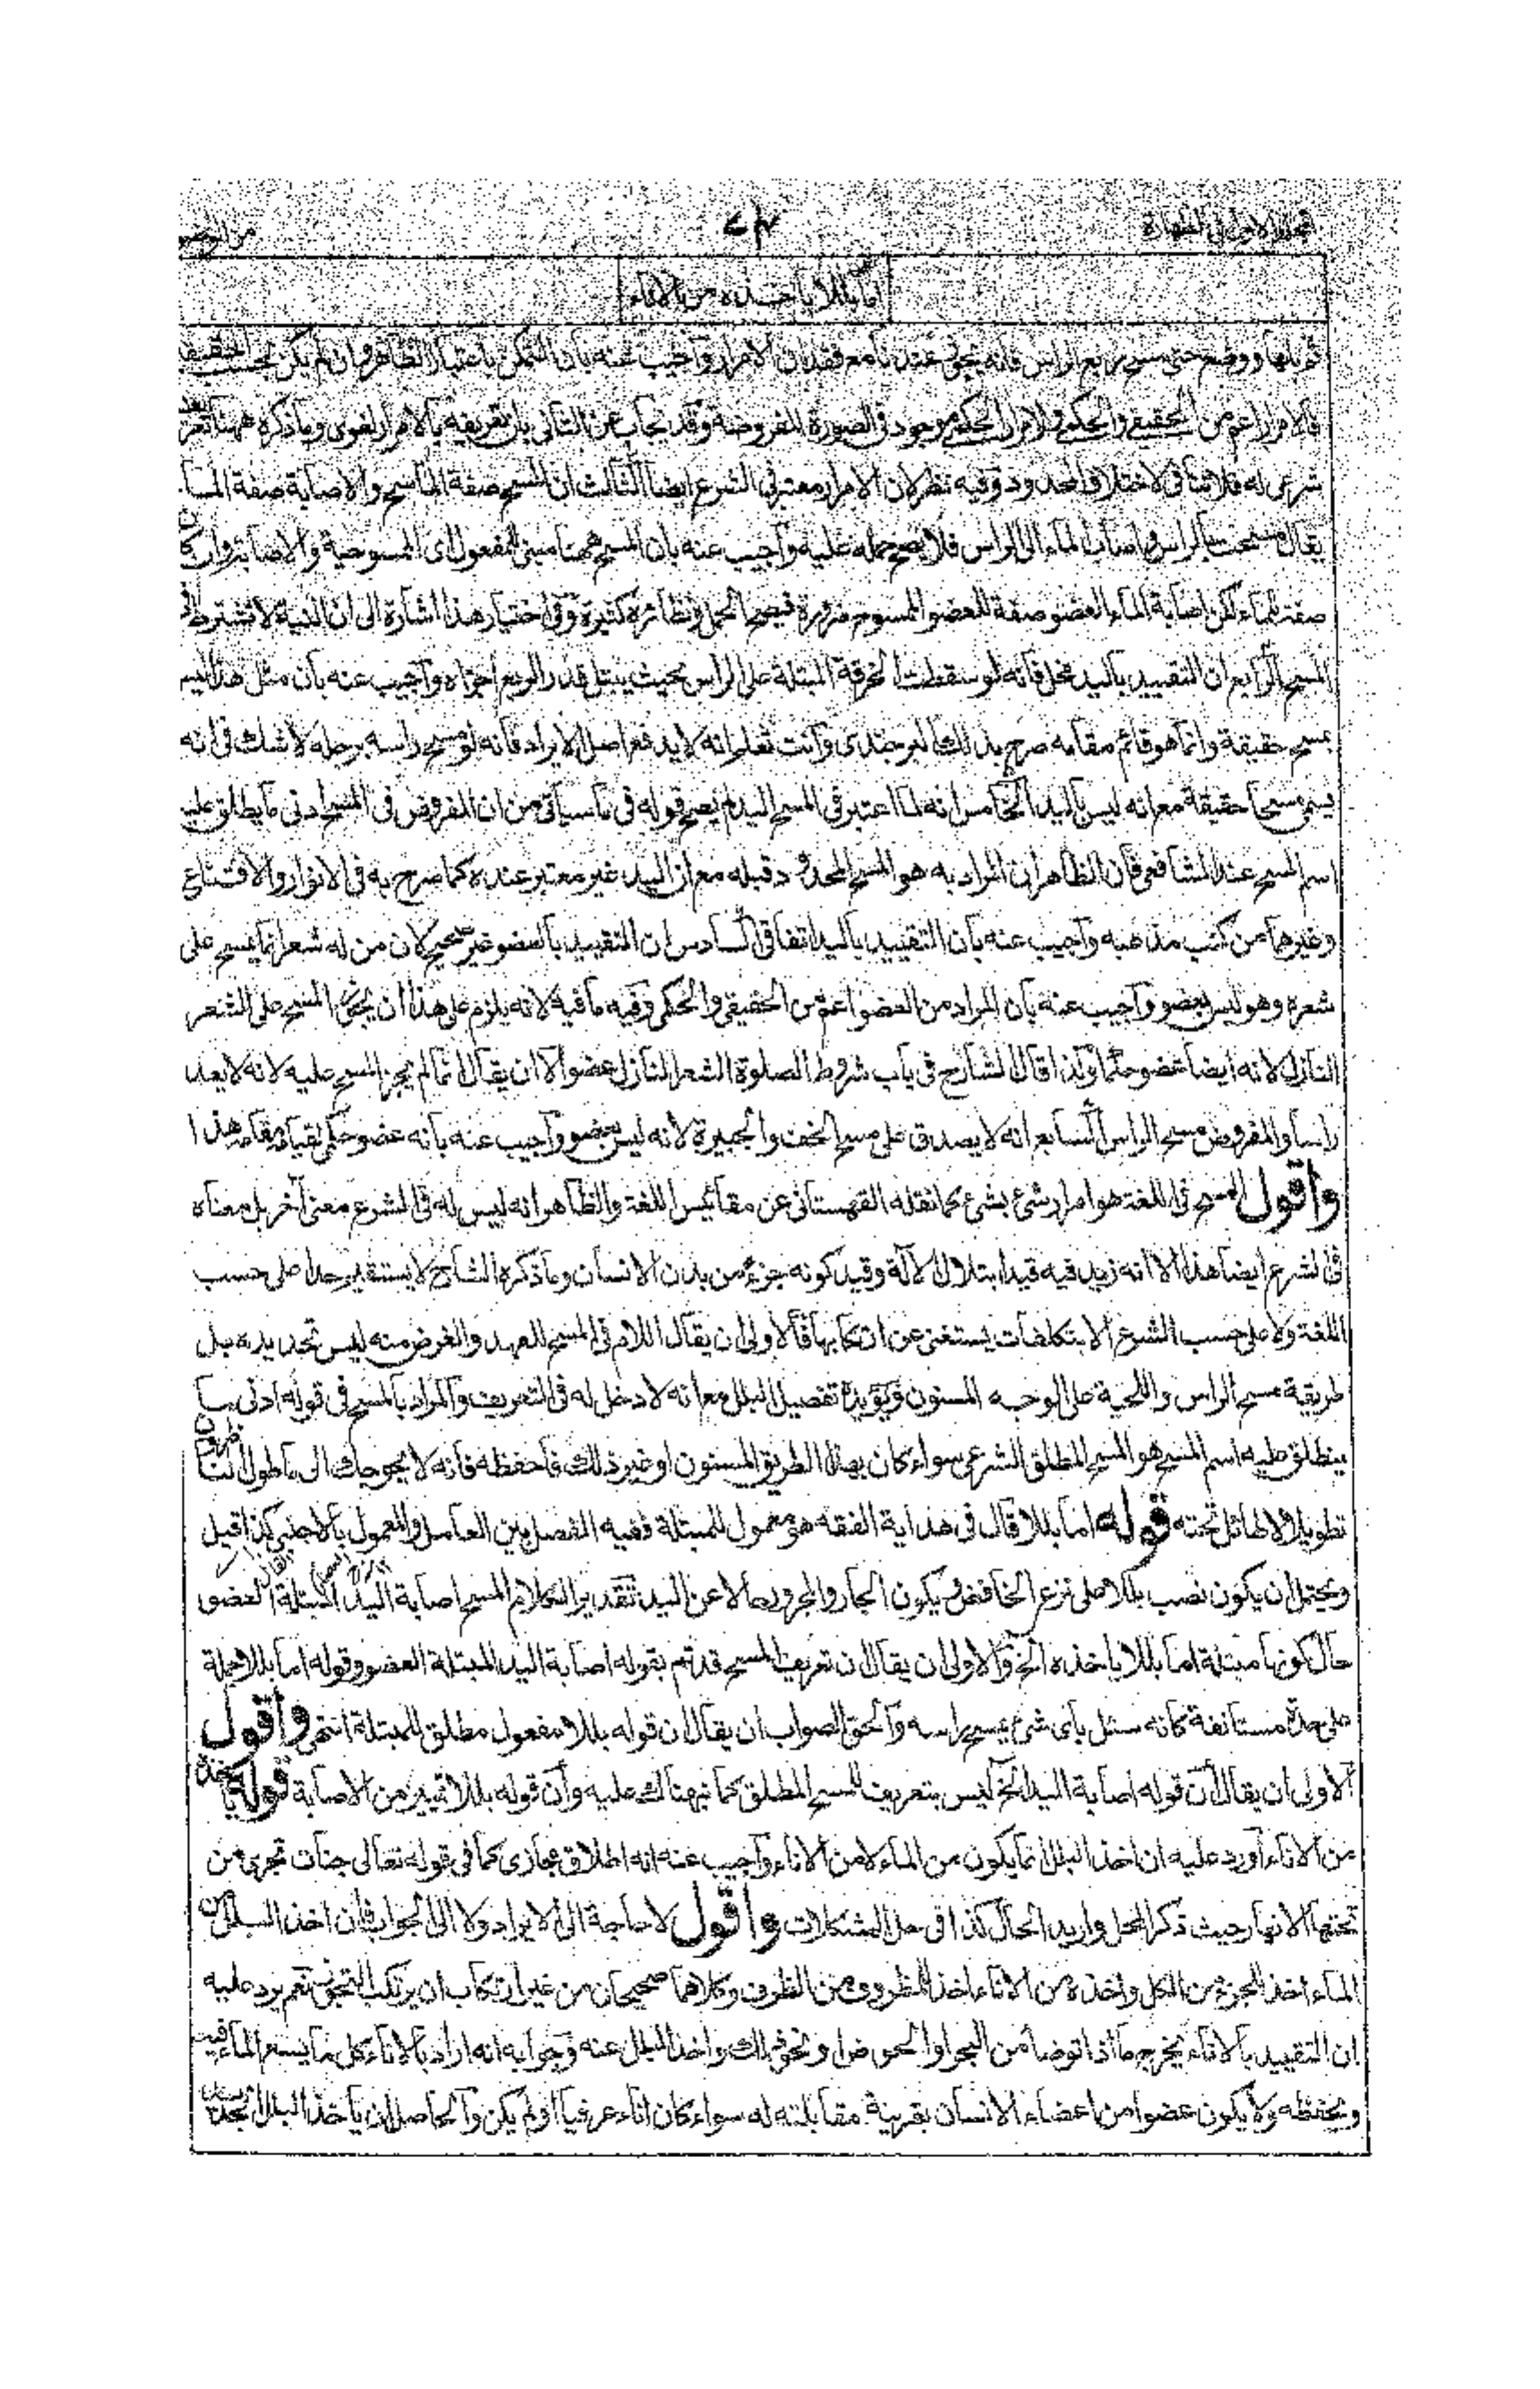 اما بللا ياخذه من الاناء
ثم بلها ووضع حتى مسح ربع الراس فانه يجزئ عندنا مع فقدان الامرار وآجيب عنه بان التمكن باعتبار الظاهر وان لم يكن بحسب الحقيقة
فالامرار اعم من الحقيقي والحكمي والامرار الحكمي موجود في الصورة المفروضة وقد يجاب عن الثاني بان تعريفه بالامرار لغوي وما ذكره ههنا تعريف
شرعي له فلا تنافي لاختلاف المحدود وفيه نظر لان الامرار معتبر في الشرع ايضا الثالث ان المسح صفة الماسح والاصابة صفة الماء
يقال مسحت بالراس واصاب الماء الى الراس فلا يصح حمله عليه وآجيب عنه بان المسح ههنا مبني للمفعول اي الممسوحية والاصابة وان كان
صفة للماء لكن اصابة الماء العضو صفة للعضو الممسوح ضرورة فيصح الحمل ونظائره كثيرة وفي اختيار هذا اشارة الى ان النية لا تشترط في
المسح الرابع ان التقييد باليد مخل فانه لو سقطت الخرقة المبتلة على الراس بحيث يبتل قدر الربع اجزاه وآجيب عنه بان مثل هذا ليس
بمسح حقيقة وانما هو قائم مقامه صرح بذلك البرجندي وآنت تعلم انه لا يدفع اصل الايراد فانه لو مسح راسه برجله لا شك في انه
يسمى مسحا حقيقة مع انه ليس باليد الخامس انه لما اعتبر في المسح اليد لم يصح قوله في ما سياتي من ان المفروض في المسح ادنى ما يطلق عليه
اسم المسح عند الشافعي فان الظاهر ان المراد به هو المسح المحدود قبله مع ان اليد غير معتبر عنده كما صرح به في الانوار والاقناع
وغيرها من كتب مذهبه وآجيب عنه بان التقييد باليد اتفاقي السادس ان التقييد بالعضو غير صحيح لان من له شعر انما يمسح على
شعره وهو ليس بعضو وآجيب عنه بان المراد من العضو اعم من الحقيقي والحكمي وفيه ما فيه لانه يلزم على هذا ان يجزئ المسح على الشعر
النازل لانه ايضا عضو حكما ولذا قال الشارح في باب شروط الصلوة الشعر النازل عضو الا ان يقال انما لم يجز المسح عليه لانه لا يعد
راسا والمفروض مسح الراس السابع انه لا يصدق على مسح الخف والجبيرة لانه ليس بعضو وآجيب عنه بانه عضو حكمي لقيامه مقامه هذا
وأقول المسح في اللغة هو امرار شئ بشئ كما نقله القهستاني عن مقائيس اللغة والظاهر انه ليس له في الشرع معنى آخر بل معناه
في الشرع ايضا هذا الا انه زيد فيه قيد ابتلال الآلة وقيد كونه بجزء من بدن الانسان وما ذكره الشارح لا يستقيم حدا على حسب
اللغة ولا على حسب الشرع الا بتكلفات يستغنى عن ارتكابها فالاولى ان يقال اللام في المسح للعهد والغرض منه ليس تحديده بل
طريقة مسح الراس واللحية على الوجه المسنون ويؤيده تفصيل البلل مع انه لا دخل له في التعريف والمراد بالمسح في قوله ادنى ما
ينطلق عليه اسم المسح هو المسح المطلق الشرعي سواء كان بهذا الطريق المسنون او غير ذلك فاحفظه فانه لا يحوجك الى ما طول الناظرون
تطويلا لا طائل تحته قوله اما بللا قال في هداية الفقه هو معمول للمبتلة ففيه الفصل بين العامل والمعمول بالاجنبي كذا قيل
ويحتمل ان يكون نصب بللا على نزع الخافض ويكون الجار والمجرور حالا عن اليد تقدير الكلام المسح اصابة اليد المبتلة العضو
حال كونها مبتلة اما بللا ياخذه الخ والاولى ان يقال ان تعريف المسح قد تم بقوله اصابة اليد المبتلة العضو وقوله اما بللا جملة
على حدة مستانفة كانه سئل باي شئ يمسح راسه والحق الصواب ان يقال ان قوله بللا مفعول مطلق للمبتلة انتهى وأقول
الاولى ان يقال ان قوله اصابة اليد الخ ليس بتعريف للمسح المطلق كما نبهناك عليه وان قوله بللا تمييز من الاصابة قوله ياخذه
من الاناء اورد عليه ان اخذ البلل انما يكون من الماء لا من الاناء وآجيب عنه انه اطلاق مجازي كما في قوله تعالى جنات تجري من
تحتها الانهار حيث ذكر المحل واريد الحال كذا في حل المشكلات وأقول لا حاجة الى الايراد ولا الى الجواب فان اخذ البلل من
الماء اخذ للجزء من الكل واخذه من الاناء اخذ المظروف من الظرف وكلاهما صحيحان من غير ارتكاب ان يرتكب التجوز نعم يرد عليه
ان التقييد بالاناء يخرج ما اذا توضا من البحر او الحوض او نحو ذلك واخذ البلل عنه وجوابه انه اراد بالاناء كل ما يسع الماء فيه
ويحفظه ولا يكون عضوا من اعضاء الانسان بقرينة مقابلته له سواء كان اناء عرفيا او لم يكن والحاصل ان ياخذ البلل الجديد